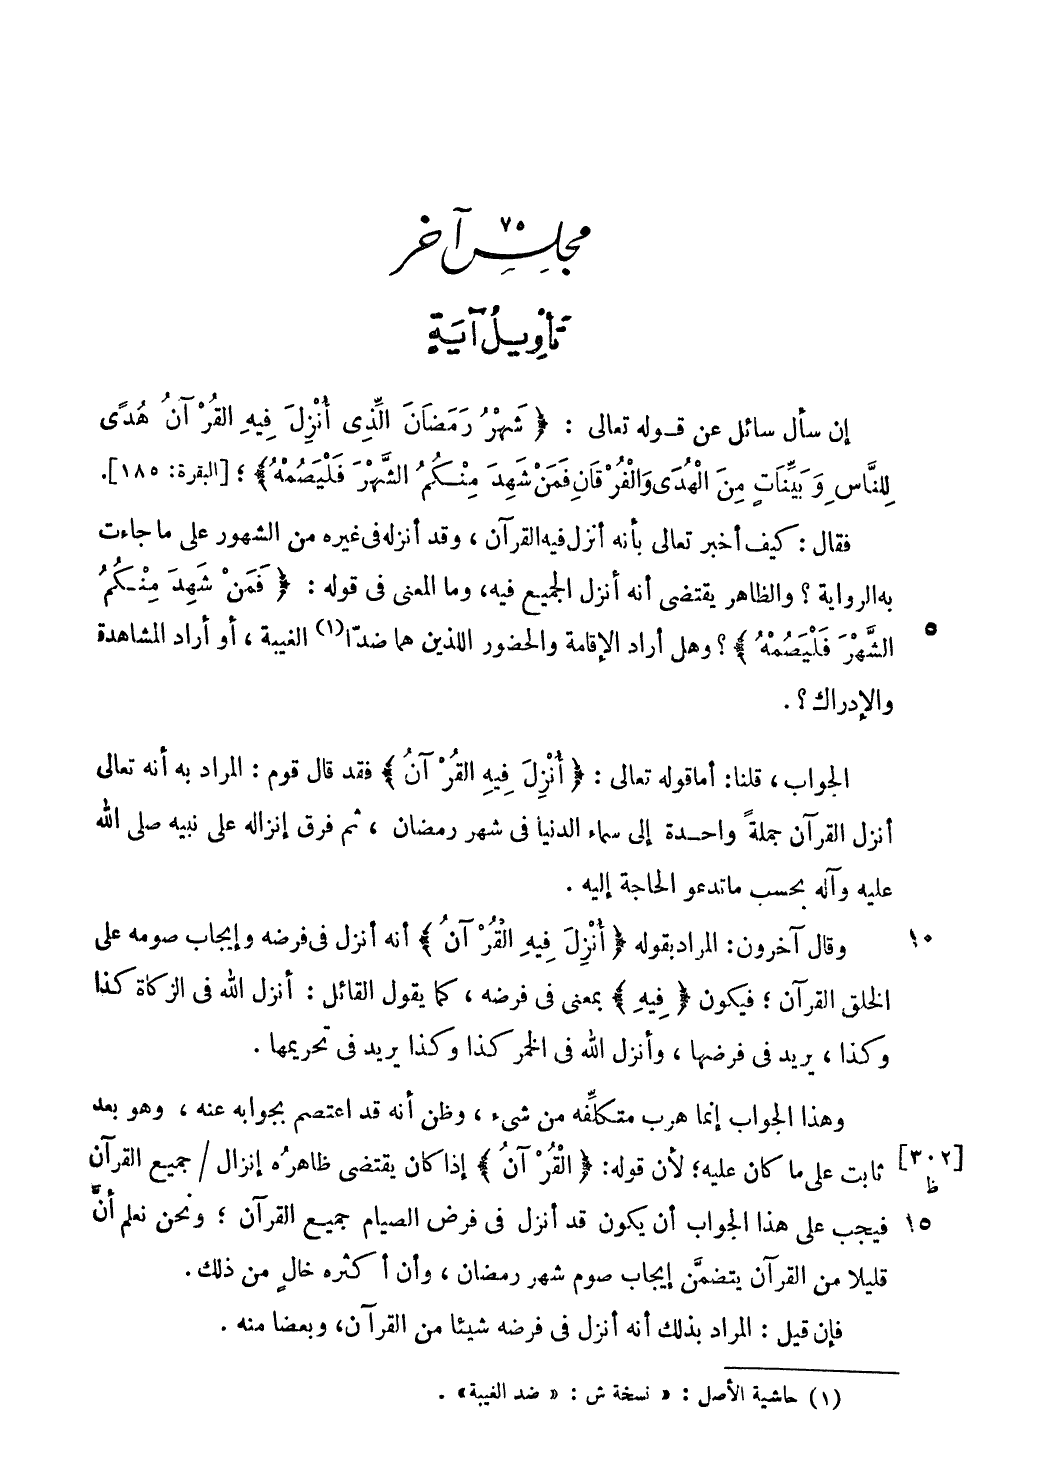 ٧٥
مجلس آخر
تَأْوِيلُ آيَةٍ
إن سأل سائل عن قوله تعالى : ﴿ شَهْرُ رَمَضَانَ الَّذِى أُنْزِلَ فِيهِ القُرْآنُ هُدًى
لِلنَّاسِ وَبَيِّنَاتٍ مِنَ الْهُدَى وَالْفُرْقَانِ فَمَنْ شَهِدَ مِنْكُمُ الشَّهْرَ فَلْيَصُمْهُ ﴾ ؛ [البقرة: ١٨٥].
فقال : كيف أخبر تعالى بأنه أنزل فيه القرآن ، وقد أنزله فى غيره من الشهور على ما جاءت
به الرواية ؟ والظاهر يقتضى أنه أنزل الجميع فيه، وما المعنى فى قوله : ﴿ فَمَنْ شَهِدَ مِنْكُمُ
الشَّهْرَ فَلْيَصُمْهُ ﴾ ؟ وهل أراد الإقامة والحضور اللذين هما ضدّا(١) الغيبة ، أو أراد المشاهدة ٥
والإدراك ؟ .
الجواب ، قلنا: أما قوله تعالى : ﴿ أُنْزِلَ فِيهِ القُرْآنُ ﴾ فقد قال قوم : المراد به أنه تعالى
أنزل القرآن جملةً واحدة إلى سماء الدنيا فى شهر رمضان ، ثم فرق إنزاله على نبيه صلى الله
عليه وآله بحسب ما تدعو الحاجة إليه .
وقال آخرون: المراد بقوله ﴿ أُنْزِلَ فِيهِ الْقُرْآنُ ﴾ أنه أنزل فى فرضه وإيجاب صومه على ١٠
الخلق القرآن ؛ فيكون ﴿ فِيهِ ﴾ بمعنى فى فرضه ، كما يقول القائل : أنزل الله فى الزكاة كذا
وكذا ، يريد فى فرضها ، وأنزل الله فى الخمر كذا وكذا يريد فى تحريمها .
وهذا الجواب إنما هرب متكلِّفه من شىء ، وظن أنه قد اعتصم بجوابه عنه ، وهو بعد
ثابت على ما كان عليه؛ لأن قوله: ﴿ الْقُرْآنُ ﴾ إذا كان يقتضى ظاهرُه إنزال / جميع القرآن [٣٠٢ ظ]
فيجب على هذا الجواب أن يكون قد أنزل فى فرض الصيام جميع القرآن ؛ ونحن نعلم أنَّ ١٥
قليلا من القرآن يتضمَّن إيجاب صوم شهر رمضان ، وأن أكثره خالٍ من ذلك .
فإن قيل : المراد بذلك أنه أنزل فى فرضه شيئا من القرآن، وبعضا منه .
(١) حاشية الأصل : « نسخة ش : « ضد الغيبة» .